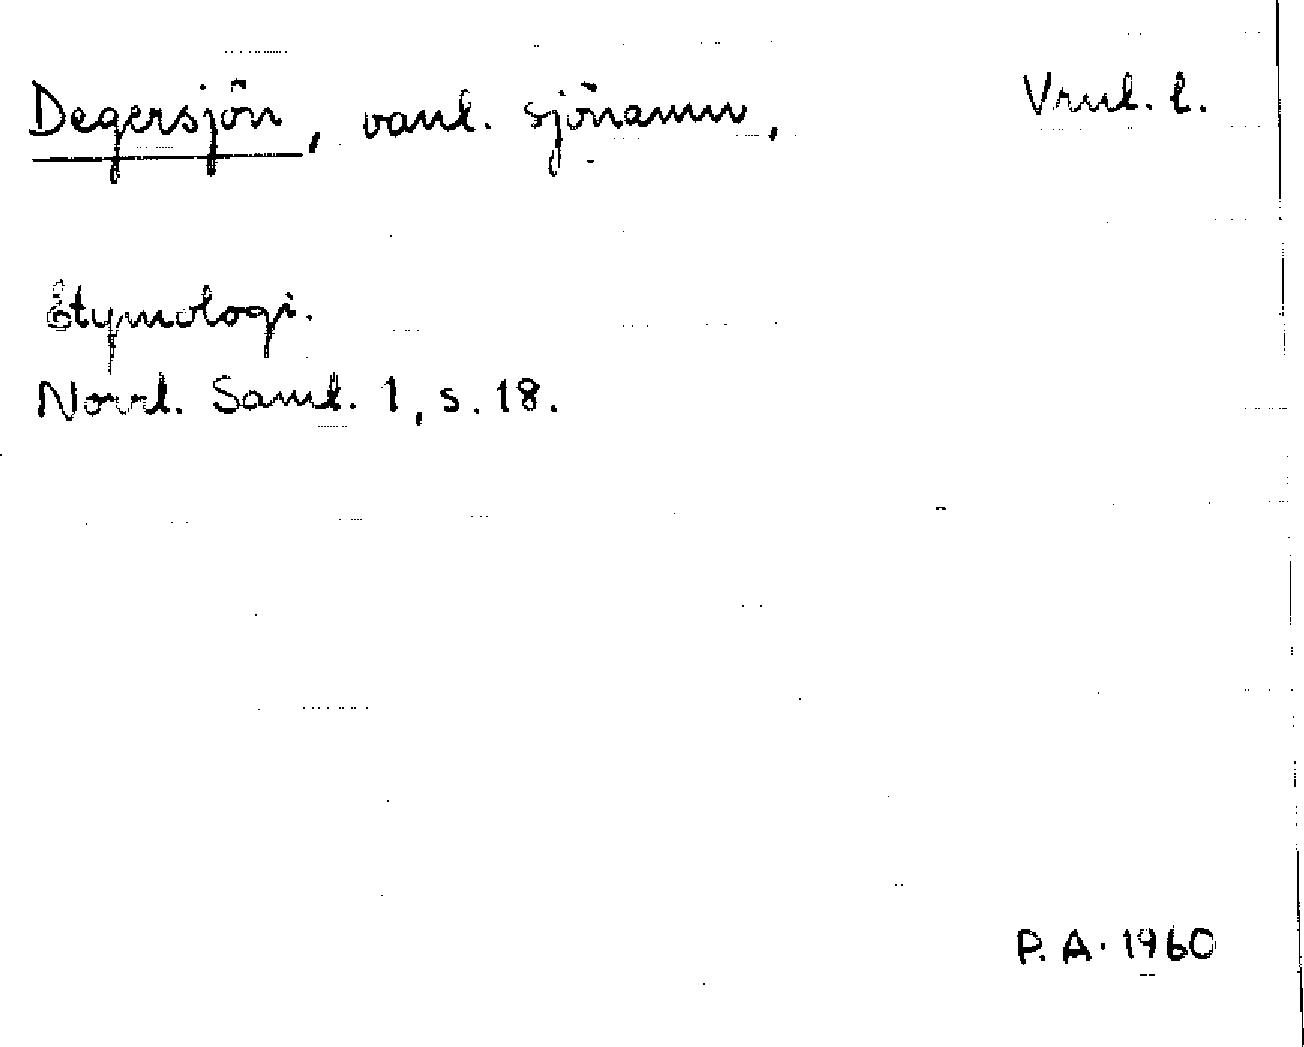 Degersjön, vanl. sjönamn, Vrml. l.
Etymologi.
Norrl. Saml. 1, s. 18.
P. A. 1960